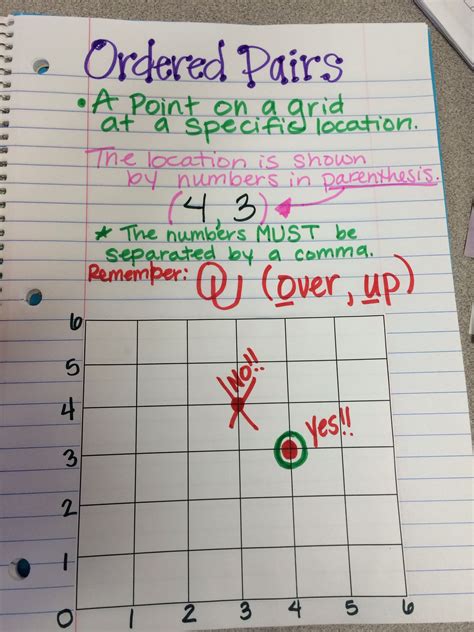 Ordered Pairs
• A Point on a grid
at a specific location.
The location is shown
by numbers in parenthesis.
(4, 3)
* The numbers MUST be
separated by a comma.
Remember: OU (over, up)
6
5
4
3
2
1
0 1 2 3 4 5 6
NO!!
Yes!!